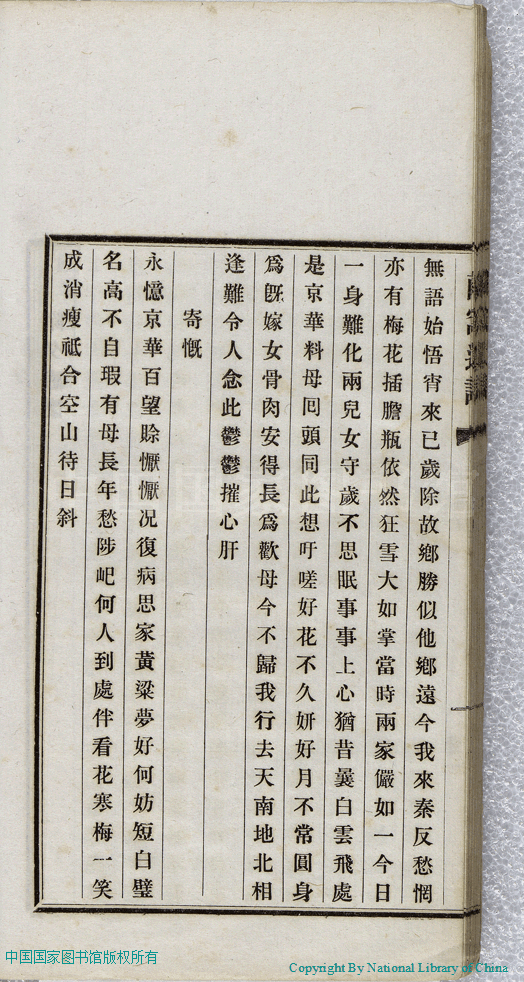 無語始悟宵來已歲除故鄉勝似他鄉遠今我來秦反愁惘
亦有梅花插膽瓶依然狂雪大如掌當時兩家儼如一今日
一身難化兩兒女守歲不思眠事事上心猶昔曩白雲飛處
是京華料母囘頭同此想吁嗟好花不久妍好月不常圓身
爲旣嫁女骨肉安得長爲歡母今不歸我行去天南地北相
逢難令人念此鬱鬱摧心肝
寄慨
永憶京華百望賒懨懨况復病思家黃粱夢好何妨短白璧
名高不自瑕有母長年愁陟屺何人到處伴看花寒梅一笑
成消瘦祗合空山待日斜
中国国家图书馆版权所有
Copyright By National Library of China